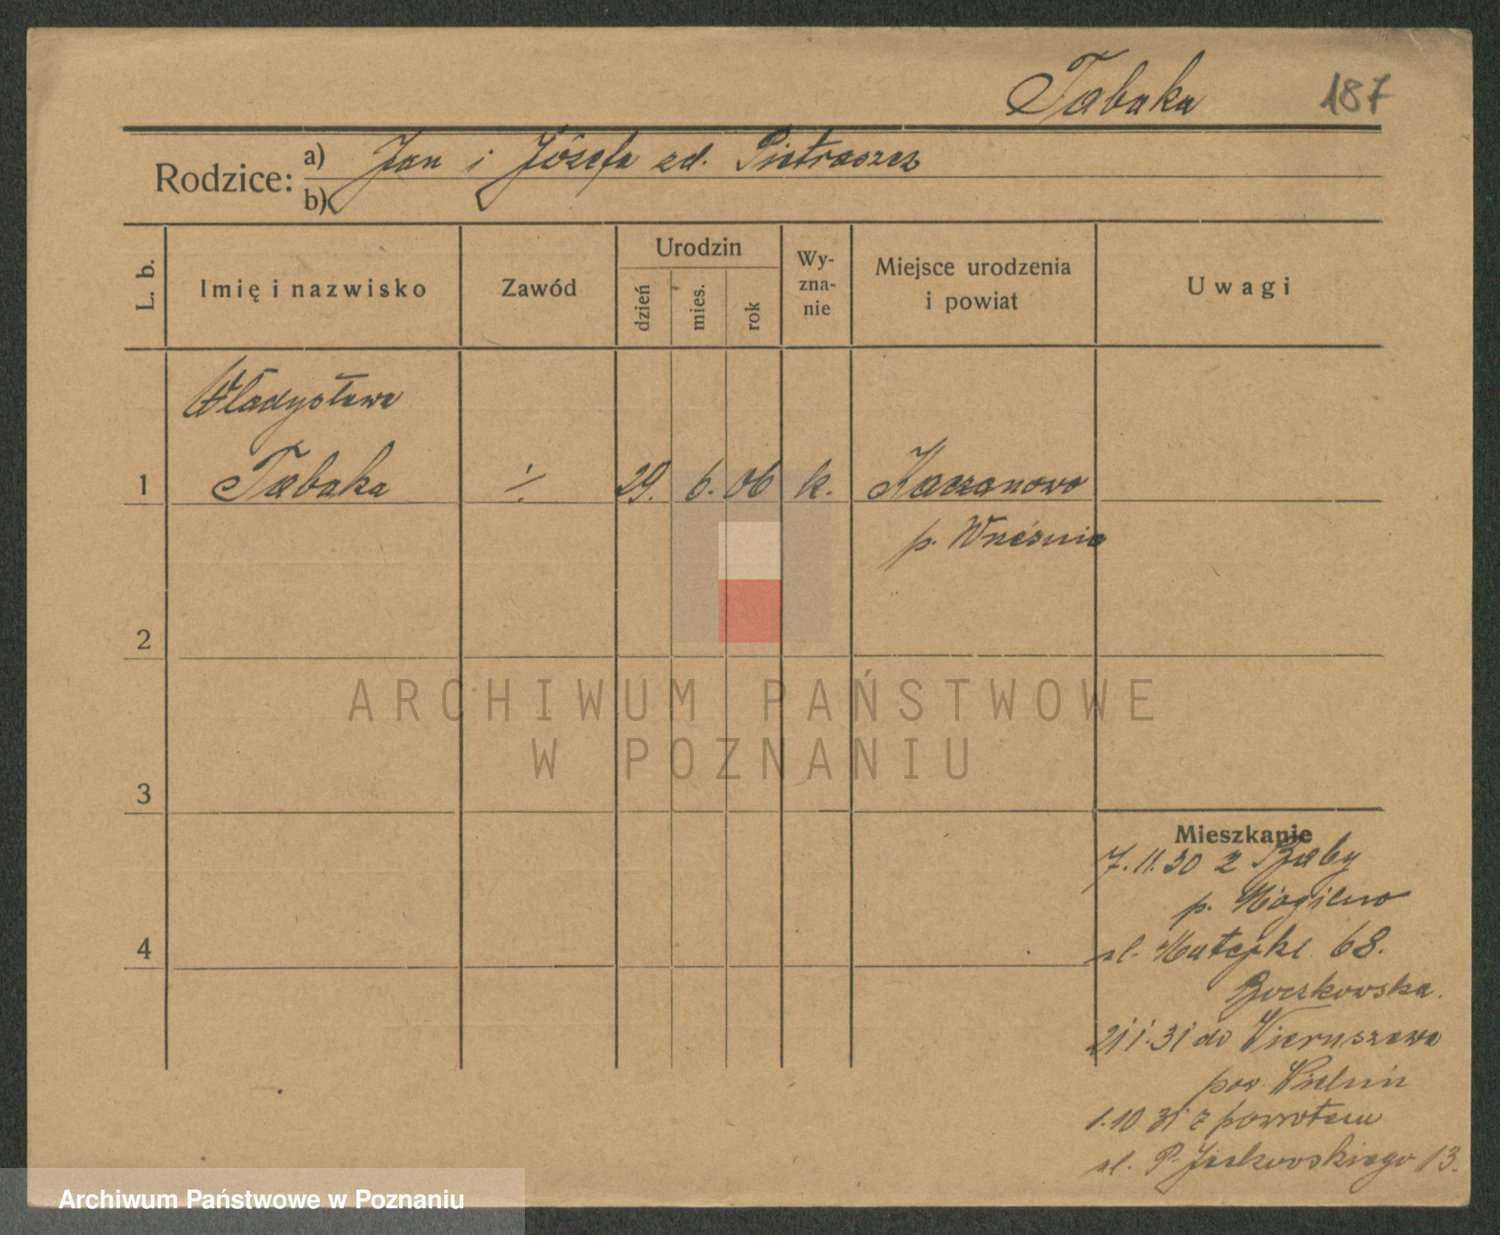 Tabaka 187
Rodzice: a) Jan i Józefa zd. Pietraszcz
b)
L. b. Imię i nazwisko Zawód Urodzin dzień mies. rok Wy-zna-nie Miejsce urodzenia i powiat Uwagi
Władysława
1 Tabaka ./. 29. 6. 06 k. Kaczanowo
p. Września
2
ARCHIWUM PAŃSTWOWE
W POZNANIU
3
Mieszkanie
7.11.30 z
p. Mogilno
4 ul. Matejki 68.
Boczkowska.
21.1.31 do Wieruszowa
pow. Wieluń
1.10 31 z powrotem
ul. P. Jackowskiego 13.
Archiwum Państwowe w Poznaniu